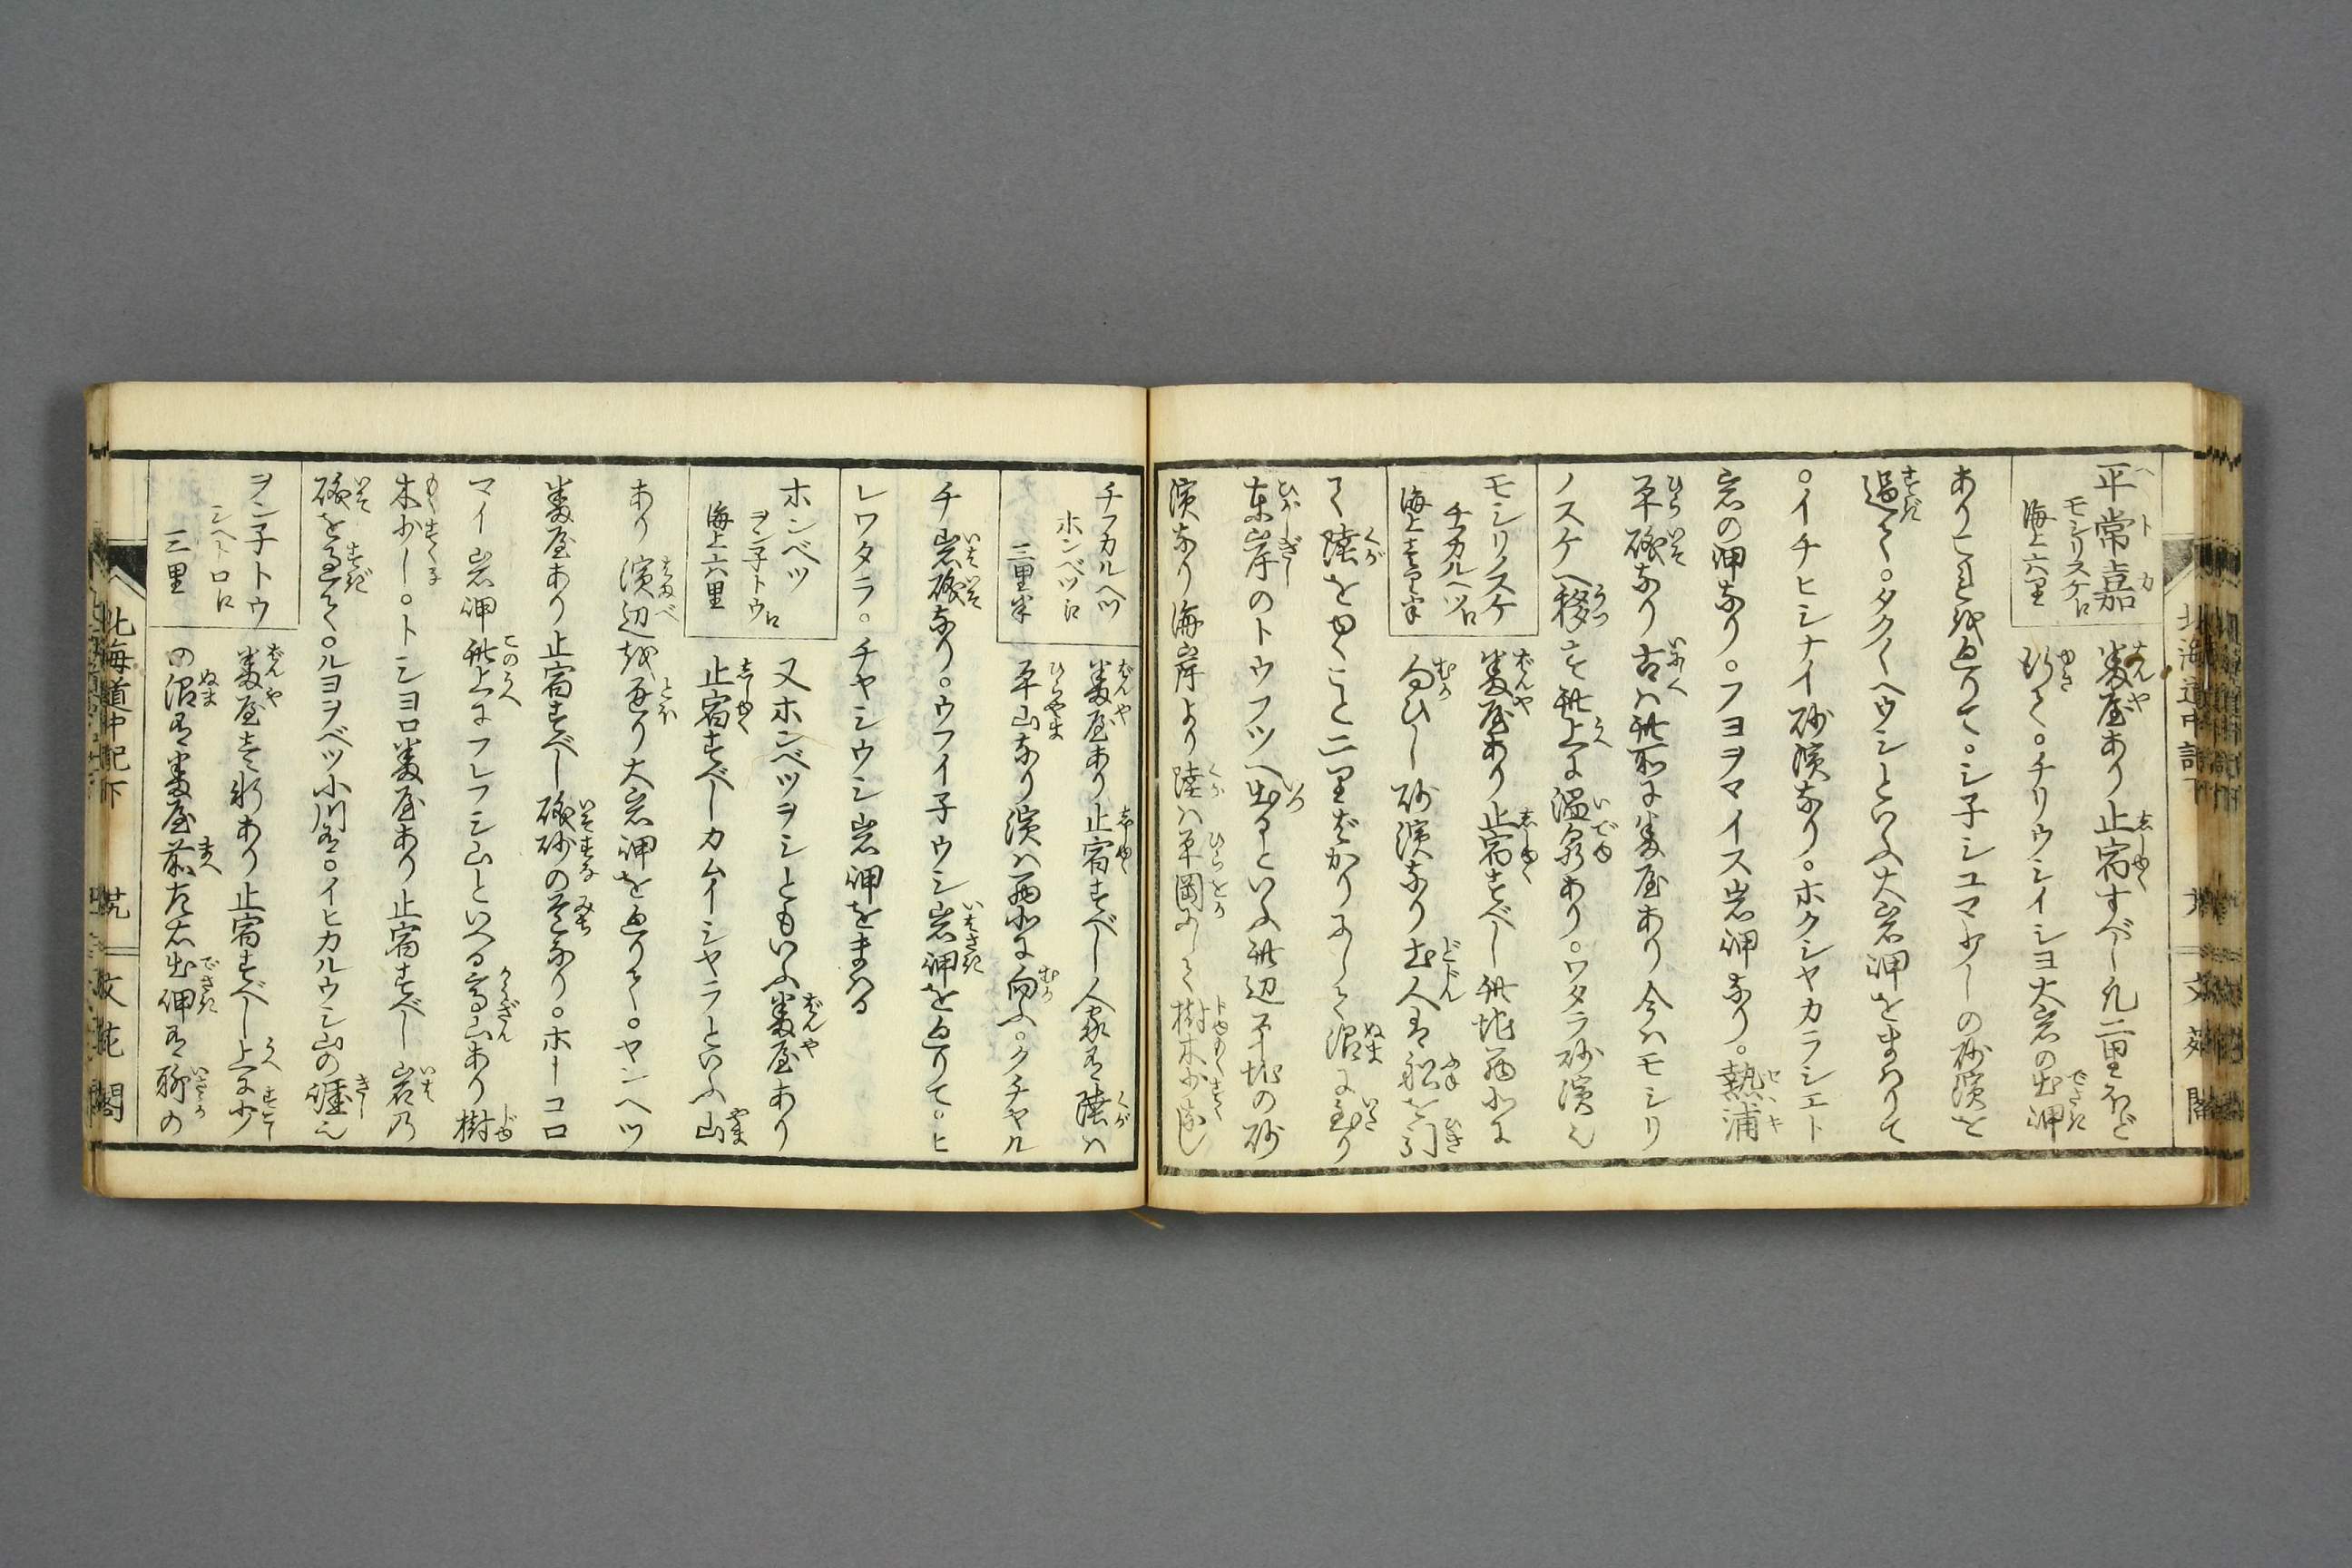 平常嘉
モシリノスケ口
海上六里
番屋あり止宿すべし凡二里ほど
行て。チリウシイシヨ大岩の出岬
あり是を廻りて。シ子シユマ少しの砂濱を
過て。タクヘウシといふ大岩岬をまはりて
。イチヒシナイ砂濱なり。ホクシヤカラシエト
岩の岬なり。フヨヲマイス岩岬なり。熱浦
平磯なり古ハ此所に番屋あり今ハモシリ
ノスケへ移す此上に温泉あり。ワタラ砂濱也
モシリノスケ
チフカルヘツ口
海上壱里半
番屋あり止宿すべし此地西北に
向ひし砂濱なり土人は船を引
て陸をゆくこと二里ばかりにして沼に至り
東岸のトウフツへ出るといふ此辺平地の砂
濱なり海岸より陸ハ平岡にして樹木少なし
チフカルヘツ
ホンベツ口
三里半
番屋あり止宿すべし人家は陸ハ
平山なり濱ハ西北に向ふ。クチヤル
チ岩磯なり。ウフイ子ウシ岩岬を廻りて。ヒ
レワタラ。チヤシウシ岩岬をまはる
ホンベツ
ヲン子トウ口
海上六里
又ホンベツヲシともいふ番屋あり
止宿すべしカムイシヤラといふ山
あり濱辺を通り大岩岬を廻りて。ヤンヘツ
番屋あり止宿すべし磯砂の道なり。ホーコロ
マイ岩岬此上にフレフシ山といへる高山あり樹
木少し。トシヨロ番屋あり止宿すべし岩乃
磯を過て。ルヨヲベツ小川有。イヒカルウシ山の
ヲン子トウ
シヘトロ口
三里
番屋壱軒あり止宿すべし上に少
の沼有番屋前左右出岬有聊の
北海道中記下
文苑閣